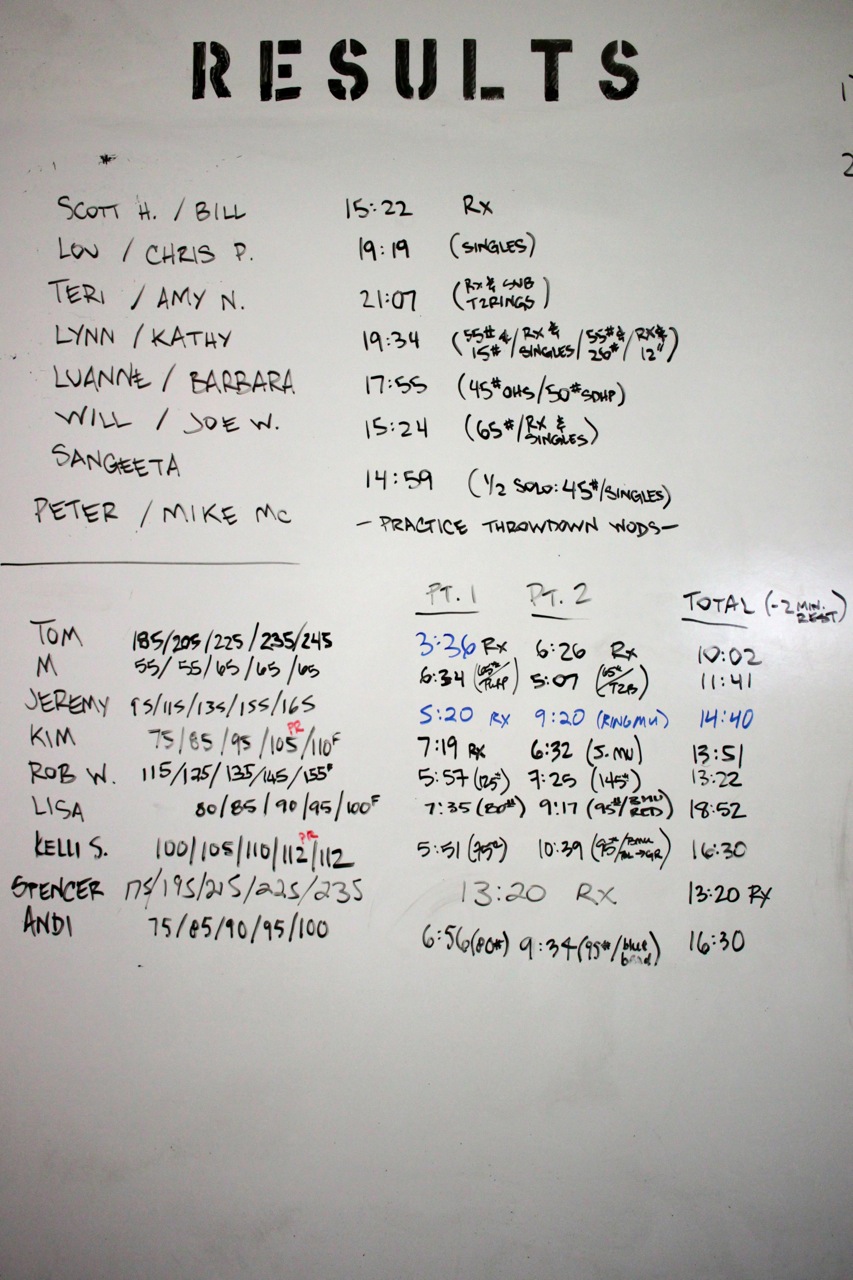 RESULTS
SCOTT H. / BILL 15:22 Rx
LOU / CHRIS P. 19:19 (SINGLES)
TERI / AMY N. 21:07 (Rx & SUB T2RINGS)
LYNN / KATHY 19:34 (55# & 15# / RX & SINGLES / 55# & 26# / RX & 12")
LUANNE / BARBARA 17:55 (45# OHS/50# SDHP)
WILL / JOE W. 15:24 (65#/RX & SINGLES)
SANGEETA 14:59 (1/2 SOLO: 45#/SINGLES)
PETER / MIKE MC - PRACTICE THROWDOWN WODS -
PT. 1 PT. 2 TOTAL (-2 MIN. REST)
TOM 185/205/225/235/245 3:36 Rx 6:26 Rx 10:02
M 55/55/65/65/65 6:34 (65#/) 5:07 (65#/T2B) 11:41
JEREMY 95/115/135/155/165 5:20 RX 9:20 (RING MU) 14:40
KIM 75/85/95/105 PR/110F 7:19 RX 6:32 (J. MU) 13:51
ROB W. 115/125/135/145/155F 5:57 (125#) 7:25 (145#) 13:22
LISA 80/85/90/95/100F 7:35 (80#) 9:17 (95#/BMU RED) 18:52
KELLI S. 100/105/110/112 PR/112 5:51 (75#) 10:39 (95#/BMU → GR) 16:30
SPENCER 175/195/215/225/235 13:20 RX 13:20 RX
ANDI 75/85/90/95/100 6:56 (80#) 9:34 (95#/blue band) 16:30